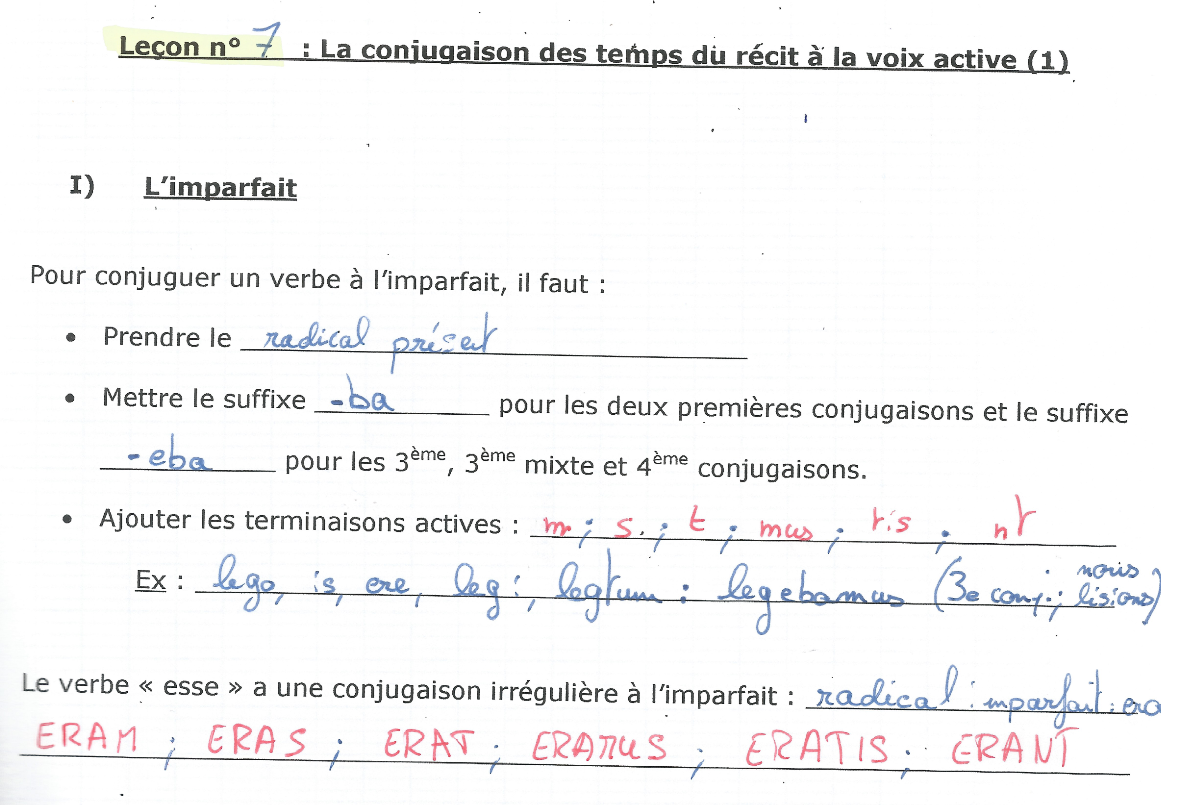 Leçon n° 7 : La conjugaison des temps du récit à la voix active (1)
I) L'imparfait
Pour conjuguer un verbe à l'imparfait, il faut :
• Prendre le radical présent
• Mettre le suffixe -ba pour les deux premières conjugaisons et le suffixe
-eba pour les 3ème, 3ème mixte et 4ème conjugaisons.
• Ajouter les terminaisons actives : m ; s ; t ; mus ; tis ; nt
Ex : lego, is, ere, legi, legtum : legebamus (3e conj. ; nous lisions)
Le verbe « esse » a une conjugaison irrégulière à l'imparfait : radical imparfait : era
ERAM ; ERAS ; ERAT ; ERAMUS ; ERATIS ; ERANT